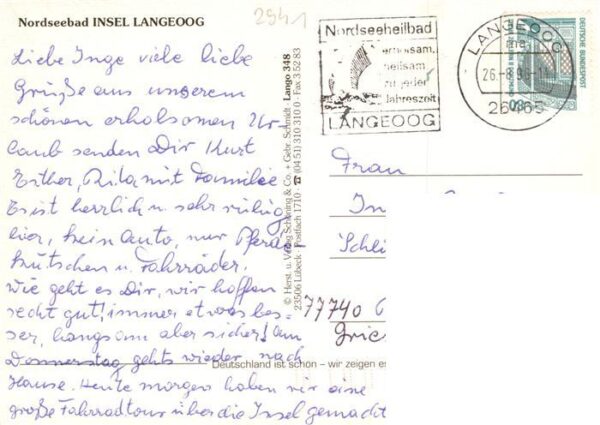 Nordseebad INSEL LANGEOOG
2541
Liebe Inge viele liebe
Grüße aus unserem
schönen erholsamen Ur-
laub senden Dir Kurt
Esther, Rita mit Familie
Es ist herrlich u. sehr ruhig
hier, kein Auto, nur Pferde
kutschen u. Fahrräder.
Wie geht es Dir, wir hoffen
recht gut! immer etwas bes-
ser, langsam aber sicher! Am
Donnerstag gehts wieder nach
Hause. Heute morgen haben wir eine
große Fahrradtour über die Insel gemacht
© Herst. u. Verlag Schöning & Co. + Gebr. Schmidt · Lango 348
23506 Lübeck · Postfach 1710 · ☎ (0451) 310310 · Fax 35283
Deutschland ist schön – wir zeigen es
Nordseeheilbad
erholsam,
heilsam
zu jeder
Jahreszeit
LANGEOOG
LANGEOOG
26.-8.96-1
26465
DEUTSCHE BUNDESPOST
80
Frau
In
Schli
77740
Grie